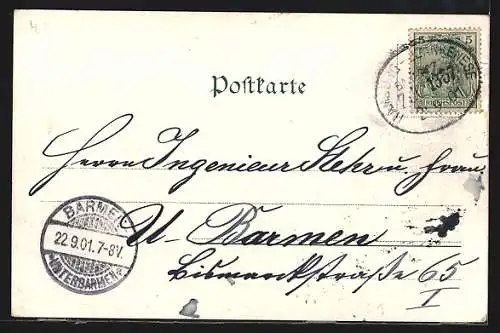 4
5 5
Postkarte
Herrn Ingenieur Stehr u. Frau.
BARMEN
22.9.01.7-8V.
UNTERBARMEN
U-Barmen
Bismarckstraße 65
I